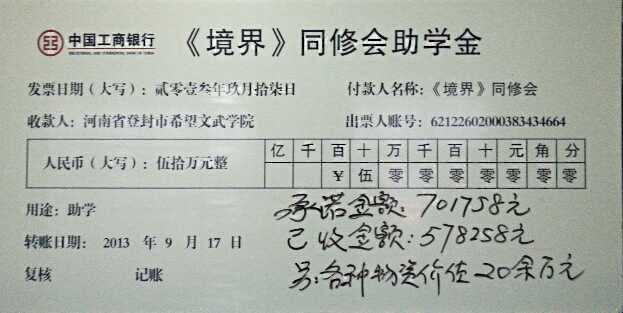 中国工商银行 《境界》同修会助学金
INDUSTRIAL AND COMMERCIAL BANK OF CHINA
发票日期（大写）：贰零壹叁年玖月拾柒日 付款人名称：《境界》同修会
收款人：河南省登封市希望文武学院 出票人账号：6212260200038343​4664
人民币（大写）：伍拾万元整 亿 千 百 十 万 千 百 十 元 角 分
¥ 伍 零 零 零 零 零 零 零
用途：助学 承诺金额：701758元
转账日期： 2013 年 9 月 17 日 已收金额：578258元
复核 记账 另：各种物资价值20余万元